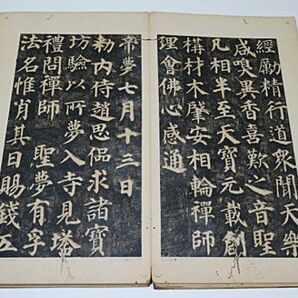 經勵精行道衆聞天樂
咸嗅異香喜歎之音聖
凡相半至天寶元載創
構材木肇安相輪禪師
理會佛心感通
帝夢七月十三日
勅内侍趙思偘求諸寶
坊驗以所夢入寺見塔
禮問禪師 聖夢有孚
法名惟肖其日賜錢五